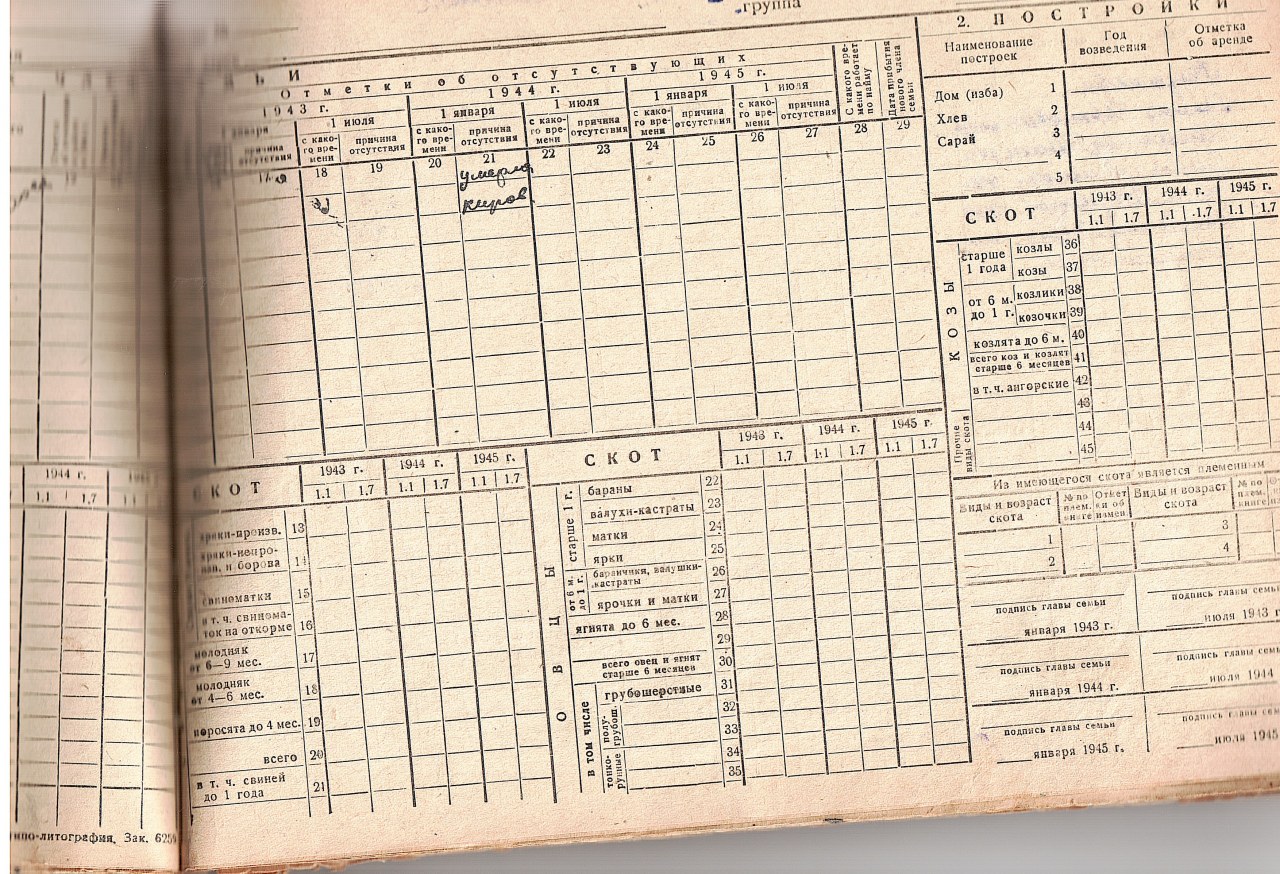 группа
Ь И
Отметки об отсутствующих
1943 г. 1944 г. 1945 г.
1 июля 1 января 1 июля 1 января 1 июля
причина отсутствия
с како-го вре-мени
причина отсутствия
с како-го вре-мени
причина отсутствия
с како-го вре-мени
причина отсутствия
с како-го вре-мени
причина отсутствия
с како-го вре-мени
причина отсутствия
С какого вре-мени работает по найму
Дата прибытия нового члена семьи
18 19 20 21 22 23 24 25 26 27 28 29
умерла
киров
2. ПОСТРОЙКИ
Наименование построек
Год возведения
Отметка об аренде
Дом (изба) 1
Хлев 2
Сарай 3
4
5
СКОТ 1943 г. 1944 г. 1945 г.
1.1 1.7 1.1 1.7 1.1 1.7
КОЗЫ
старше 1 года
козлы 36
козы 37
от 6 м. до 1 г.
козлики 38
козочки 39
козлята до 6 м. 40
всего коз и козлят старше 6 месяцев 41
в т.ч. ангорские 42
Прочие виды скота
43
44
45
Из имеющегося скота является племенным
Виды и возраст скота
№ по плем. книге
Виды и возраст скота
№ по плем. книге
1 3
2 4
подпись главы семьи
января 1943 г.
подпись главы семьи
июля 1943 г
подпись главы семьи
января 1944 г.
подпись главы семьи
июля 1944
подпись главы семьи
января 1945 г.
подпись главы семьи
июля 1945
1944 г.
1.1 1.7
СКОТ 1943 г. 1944 г. 1945 г.
1.1 1.7 1.1 1.7 1.1 1.7
13
14
свиноматки 15
в т. ч. свинома-ток на откорме 16
молодняк от 6—9 мес. 17
молодняк от 4—6 мес. 18
поросята до 4 мес. 19
всего 20
в т. ч. свиней до 1 года 21
СКОТ 1943 г. 1944 г. 1945 г.
1.1 1.7 1.1 1.7 1.1 1.7
ОВЦЫ
старше 1 г.
бараны 22
валухи-кастраты 23
матки 24
ярки 25
от 6 м. до 1 г.
баранчики, валушки-кастраты 26
ярочки и матки 27
ягнята до 6 мес. 28
29
всего овец и ягнят старше 6 месяцев 30
в том числе
грубошерстные 31
полу-грубош.
32
33
тонко-рунные
34
35
типо-литография, Зак.